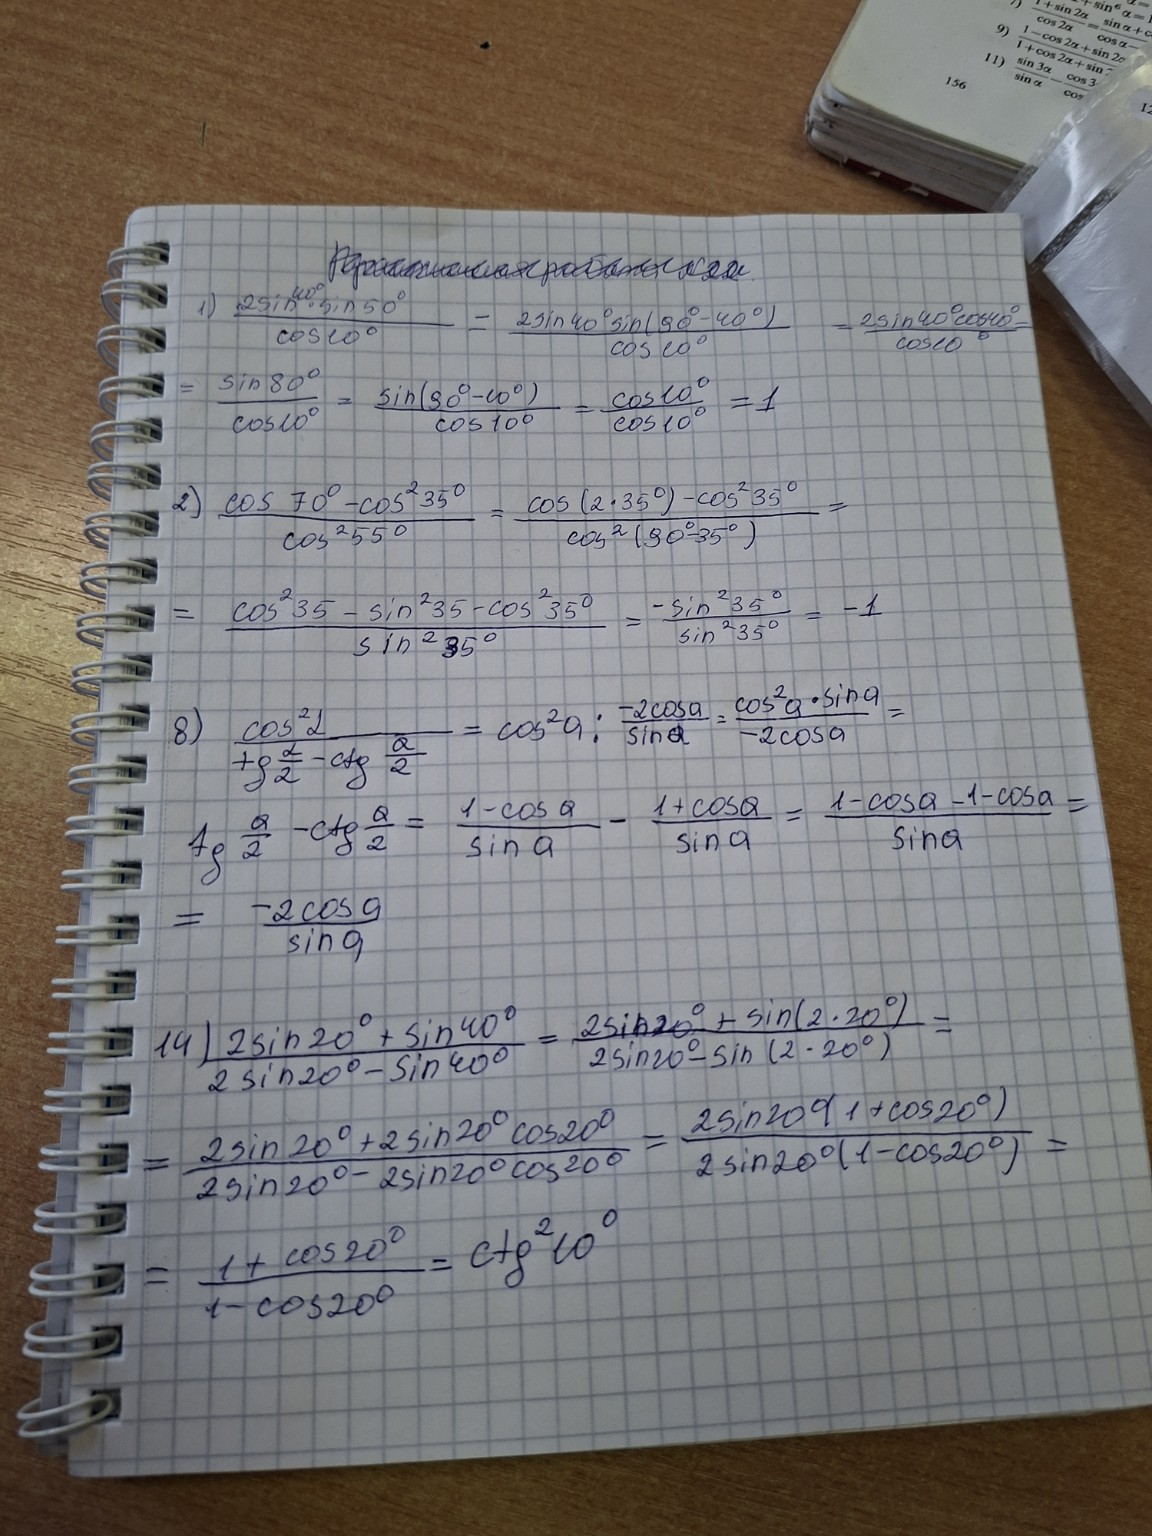 7) 1+sin 2α / cos 2α = sin α + c / cos α –
9) 1–cos 2α+sin 2α / 1+cos 2α+sin 2
11) sin 3α / sin α – cos 3 / cos
156
12
1) 2sin40°·sin50° / cos10° = 2sin40°sin(90°-40°) / cos10° = 2sin40°cos40° / cos10° =
= sin80° / cos10° = sin(90°-10°) / cos10° = cos10° / cos10° = 1
2) cos 70° - cos²35° / cos²55° = cos(2·35°) - cos²35° / cos²(90°-35°) =
= cos²35 - sin²35 - cos²35° / sin²35° = -sin²35° / sin²35° = -1
8) cos²α / tg α/2 - ctg α/2 = cos²α : -2cosα / sinα = cos²α·sinα / -2cosα =
tg α/2 - ctg α/2 = 1-cosα / sinα - 1+cosα / sinα = 1-cosα-1-cosα / sinα =
= -2cosα / sinα
14) 2sin20° + sin40° / 2sin20° - sin40° = 2sin20° + sin(2·20°) / 2sin20° - sin(2·20°) =
= 2sin20° + 2sin20°cos20° / 2sin20° - 2sin20°cos20° = 2sin20°(1+cos20°) / 2sin20°(1-cos20°) =
= 1+cos20° / 1-cos20° = ctg²10°